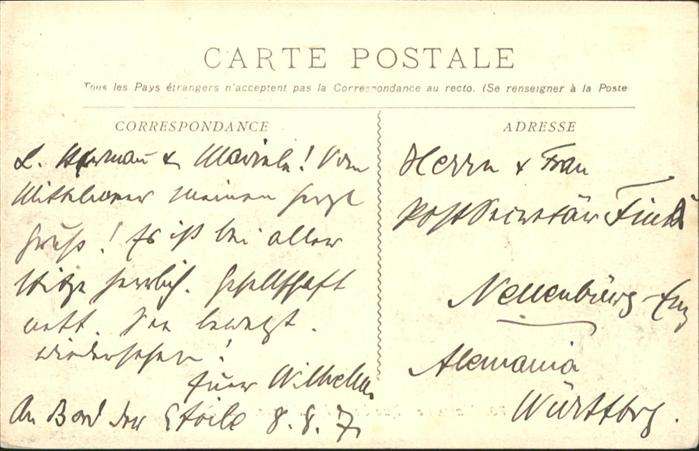 CARTE POSTALE
Tous les Pays étrangers n'acceptent pas la Correspondance au recto. (Se renseigner à la Poste
CORRESPONDANCE
L. Herman & Mariele! Vom
Mittelmeer meinen herzl
Gruß! Es ist bei aller
Hitze herrlich. Gesellschaft
nett. See bewegt.
Wiedersehen!
Euer Wilhelm
An Bord der Etoile 8.8.7
ADRESSE
Herrn & Frau
Postsecretär Fink
Neuenbürg-Enz
Alemania
Württbg.